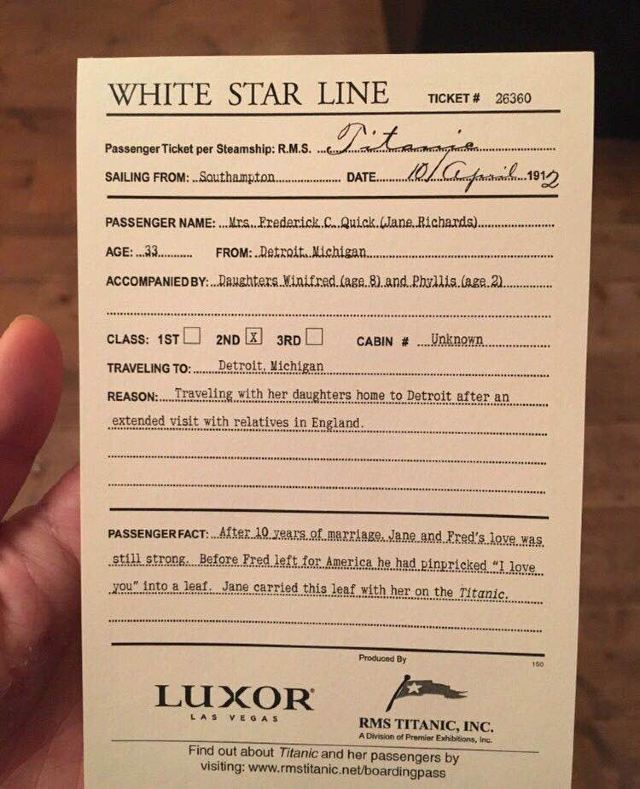 WHITE STAR LINE TICKET # 26360
Passenger Ticket per Steamship: R.M.S. Titanic
SAILING FROM: Southampton DATE 10/April 1912
PASSENGER NAME: Mrs. Frederick C. Quick (Jane Richards)
AGE: 33 FROM: Detroit, Michigan
ACCOMPANIED BY: Daughters Winifred (age 8) and Phyllis (age 2)
CLASS: 1ST 2ND X 3RD CABIN # Unknown
TRAVELING TO: Detroit, Michigan
REASON: Traveling with her daughters home to Detroit after an
extended visit with relatives in England.
PASSENGER FACT: After 10 years of marriage, Jane and Fred's love was
still strong. Before Fred left for America he had pinpricked "I love
you" into a leaf. Jane carried this leaf with her on the Titanic.
Produced By 150
LUXOR®
LAS VEGAS
RMS TITANIC, INC.
A Division of Premier Exhibitions, Inc.
Find out about Titanic and her passengers by
visiting: www.rmstitanic.net/boardingpass